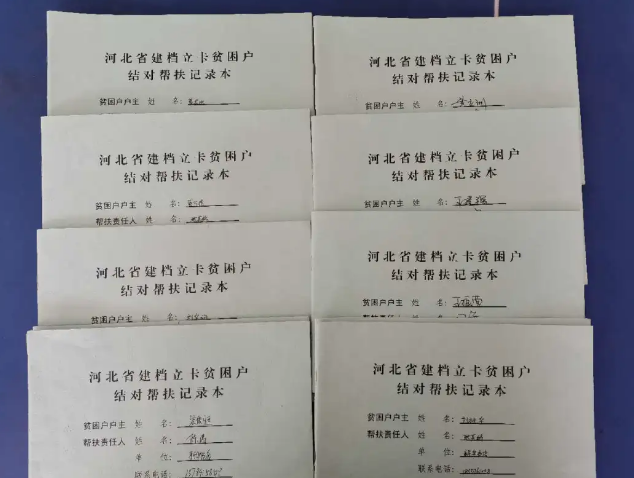 河北省建档立卡贫困户
结对帮扶记录本
贫困户户主 姓 名:
河北省建档立卡贫困户
结对帮扶记录本
贫困户户主 姓 名:
帮扶责任人 姓 名:
河北省建档立卡贫困户
结对帮扶记录本
贫困户户主 姓 名:
河北省建档立卡贫困户
结对帮扶记录本
贫困户户主 姓 名:
帮扶责任人 姓 名:
单 位:
联系电话:
河北省建档立卡贫困户
结对帮扶记录本
贫困户户主 姓 名:
河北省建档立卡贫困户
结对帮扶记录本
贫困户户主 姓 名:
河北省建档立卡贫困户
结对帮扶记录本
贫困户户主 姓 名:
河北省建档立卡贫困户
结对帮扶记录本
贫困户户主 姓 名:
帮扶责任人 姓 名:
单 位:
联系电话: